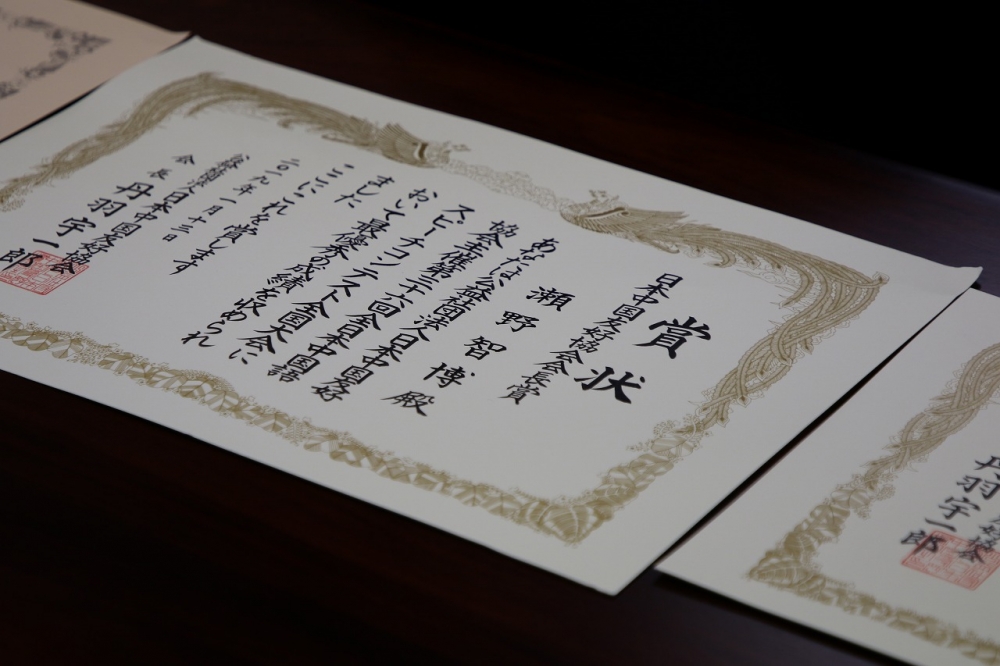 賞状
日本中国友好協会会長賞
瀬野智博 殿
あなたは公益社団法人日本中国友好
協会主催第三十六回全日本中国語
スピーチコンテスト全国大会に
おいて最優秀の成績を収められ
ました
ここにこれを賞します
二〇一九年一月十三日
公益社団法人日本中国友好協会
会長 丹羽宇一郎
丹羽宇一郎